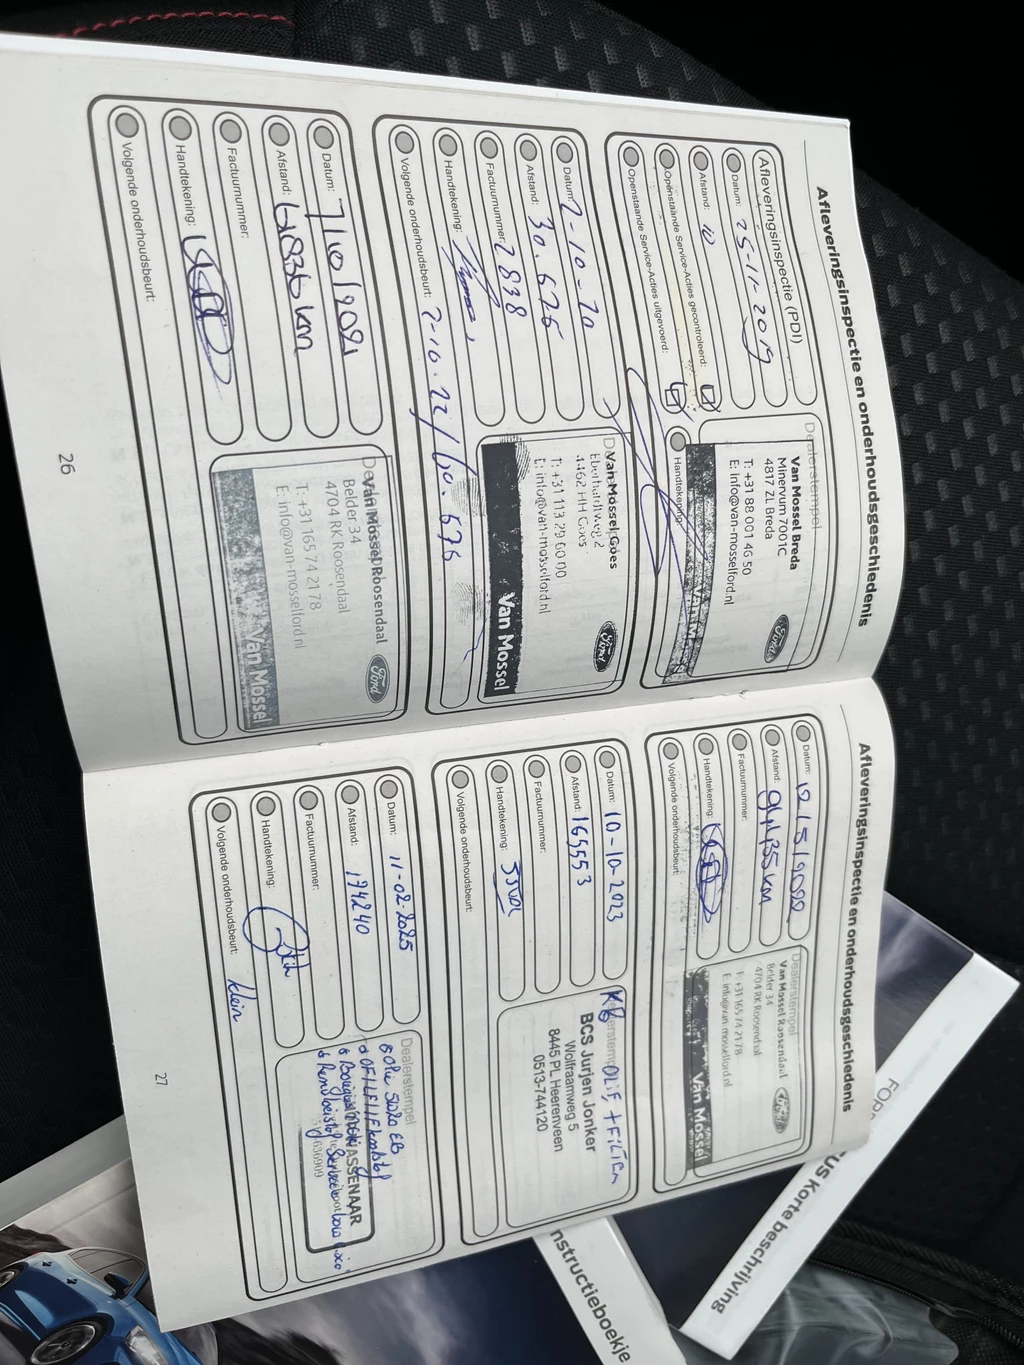 Afleveringsinspectie en onderhoudsgeschiedenis
Afleveringsinspectie (PDI)
Datum: 25-11-2019
Afstand: 10
Openstaande Service-Acties gecontroleerd:
Openstaande Service-Acties uitgevoerd:
Dealerstempel
Van Mossel Breda
Minervum 7001C
4817 ZL Breda
T: +31 88 001 46 50
E: info@van-mosselford.nl
Ford
Van Mossel
Handtekening:
Datum: 2-10-20
Afstand: 30.676
Factuurnummer: 2838
Handtekening:
Volgende onderhoudsbeurt: 2-10.22/60.676
Van Mossel Goes
4462 HH Goes
T: +31 113 29 60 90
E: info@van-mosselford.nl
Ford
Van Mossel
Datum: 7/10/2021
Afstand: 61836 km
Factuurnummer:
Handtekening:
Volgende onderhoudsbeurt:
Van Mossel Roosendaal
Belder 34
4704 RK Roosendaal
T: +31 165 74 21 78
E: info@van-mosselford.nl
Ford
Van Mossel
26
Afleveringsinspectie en onderhoudsgeschiedenis
Datum: 12/5/2022
Afstand:
Factuurnummer:
Handtekening:
Volgende onderhoudsbeurt:
Dealerstempel
Van Mossel Roosendaal
Belder 34
4704 RK Roosendaal
T: +31 165 74 21 78
E: info@van-mosselford.nl
Ford
Van Mossel
Datum: 10-10-2023
Afstand: 165553
Factuurnummer:
Handtekening:
Volgende onderhoudsbeurt:
OLIE + FILTER
BCS Jurjen Jonker
Wolfraamweg 5
8445 PL Heerenveen
0513-744120
Datum: 11-02-2025
Afstand: 194240
Factuurnummer:
Handtekening:
Volgende onderhoudsbeurt: klein
Dealerstempel
Olie 5W20
WASSENAAR
27
Korte beschrijving
nstructieboekje